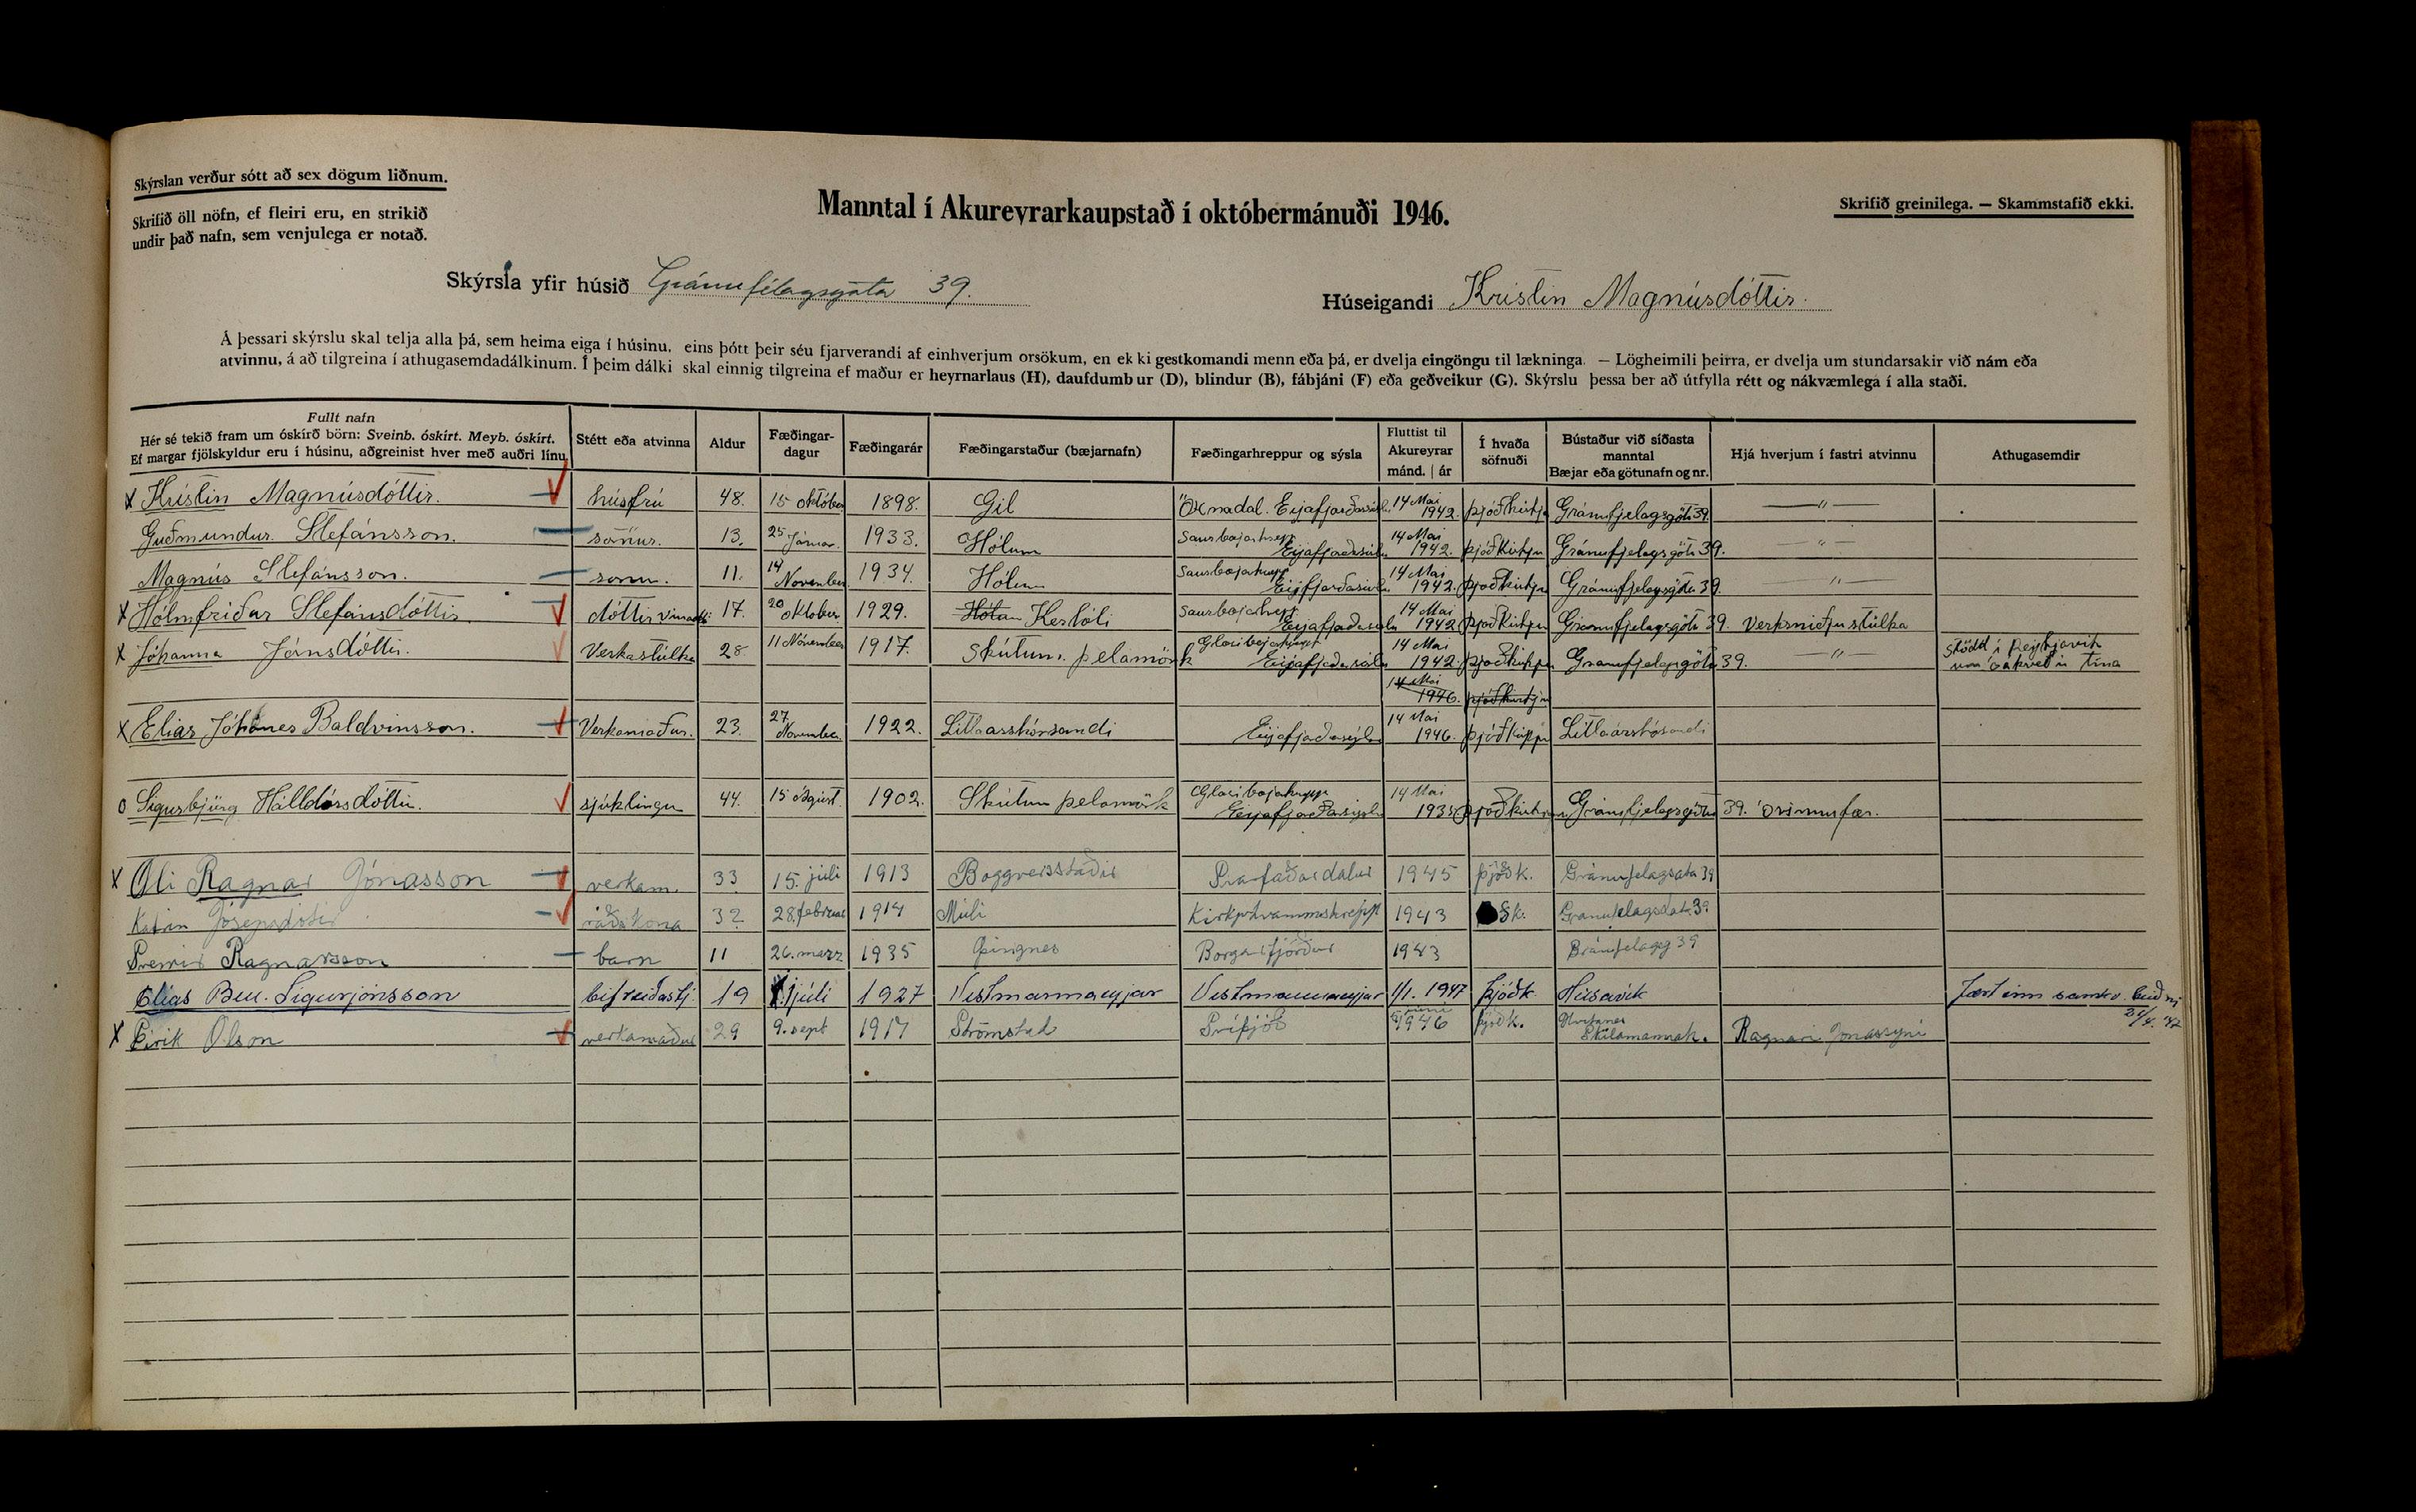 Skýrslan verður sótt að sex dögum liðnum.
Skrifið öll nöfn, ef fleiri eru, en strikið
undir það nafn, sem venjulega er notað.
Manntal í Akureyrarkaupstað í októbermánuði 1946.
Skrifið greinilega. — Skammstafið ekki.
Skýrsla yfir húsið Gránufélagsgata 39.
Húseigandi Kristín Magnúsdóttir.
Á þessari skýrslu skal telja alla þá, sem heima eiga í húsinu, eins þótt þeir séu fjarverandi af einhverjum orsökum, en ekki gestkomandi menn eða þá, er dvelja eingöngu til lækninga. — Lögheimili þeirra, er dvelja um stundarsakir við nám eða
atvinnu, á að tilgreina í athugasemdadálkinum. Í þeim dálki skal einnig tilgreina ef maður er heyrnarlaus (H), daufdumbur (D), blindur (B), fábjáni (F) eða geðveikur (G). Skýrslu þessa ber að útfylla rétt og nákvæmlega í alla staði.
Fullt nafn
Hér sé tekið fram um óskírð börn: Sveinb. óskírt. Meyb. óskírt.
Ef margar fjölskyldur eru í húsinu, aðgreinist hver með auðri línu.
Stétt eða atvinna
Aldur
Fæðingar-
dagur
Fæðingarár
Fæðingarstaður (bæjarnafn)
Fæðingarhreppur og sýsla
Fluttist til
Akureyrar
mánd. | ár
Í hvaða
söfnuði
Bústaður við síðasta
manntal
Bæjar eða götunafn og nr.
Hjá hverjum í fastri atvinnu
Athugasemdir
x Kristín Magnúsdóttir. húsfrú 48. 15 október 1898. Gil Öxnadal. 14 Mai 1942. þjóðkirkju Gránufjelagsgötu 39. —"—
Guðmundur Stefánsson. 13. 25 Janúar 1933. Hólum 14 Mai 1942. þjóðkirkju Gránufjelagsgötu 39. —"—
Magnús Stefánsson. sonur. 11. 14 November 1934. Hólum 14 Mai 1942. þjóðkirkju Gránufjelagsgötu 39. —"—
x Hólmfríður Stefánsdóttir. dóttir 17. 20 oktober 1929. 14 Mai 1942 þjóðkirkju Gránufjelagsgötu 39. Verksmiðjustúlka
x Jóhanna Jónsdóttir. Verkastúlka 28. 11 Nóvember 1917. Skútum. þelamörk 14 Mai 1942. þjóðkirkju Gránufjelagsgötu 39. —"— stödd í Reykjavík
14 Mai 1946. þjóðkirkju
x Elías Jóhannes Baldvinsson. Verkamaður. 23. 27 November 1922. 14 Mai 1946. þjóðkirkju
o Sigurbjörg Halldórsdóttir. sjúklingur 44. 15 ágúst. 1902. Skútum þelamörk 14 Mai þjóðkirkju Gránufjelagsgötu 39.
x Óli Ragnar Jónasson verkam. 33 15. júlí 1913 Böggversstaðir Svarfaðardalur 1945 þjóðk. Gránufelagsata 39
Katrín Jósepsdótir ráðskona 32 28. februar 1914 Múli Kirkjuhvammshrepp 1943 Gránufelagsgata 39
Ragnarsson barn 11 26. marz 1935 Þingnes Borgarfjörður 1943 Gránufelagsg 39
Elías Ben. Sigurjónsson bifreiðastj. 19 júlí 1927 Vestmannaeyjar Vestmannaeyjar 1/1. 1947 þjóðk Húsavík Fært inn samkv.
x Eirik Olson verkamaður 29 9. sept 1917 Strömstad Svíþjóð 1946 þjóðk. Ragnari Jónassyni